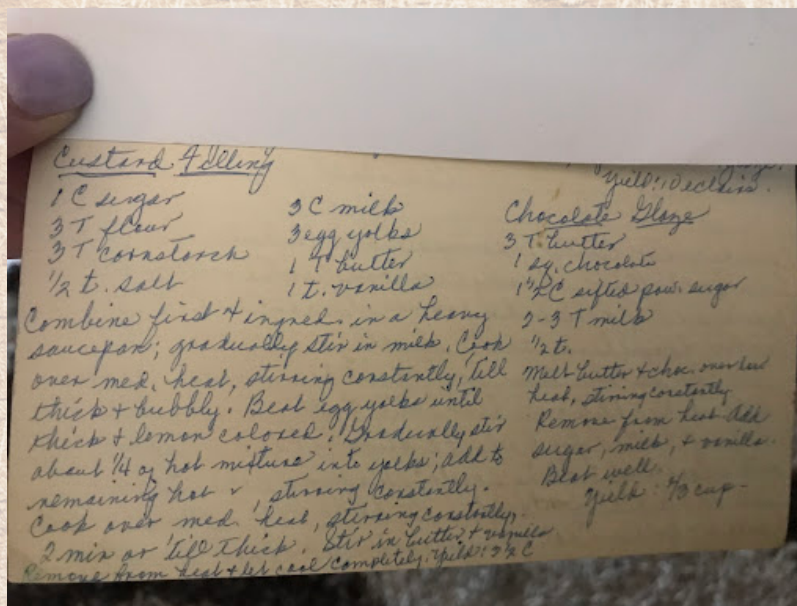 Custard Filling
1 C sugar
3 T flour
3 T cornstarch
1/2 t. salt
3 C milk
3 egg yolks
1 T butter
1 t. vanilla
Combine first 4 ingred. in a heavy
saucepan; gradually stir in milk. Cook
over med. heat, stirring constantly, till
thick + bubbly. Beat egg yolks until
thick + lemon colored. Gradually stir
about 1/4 of hot mixture into yolks; add to
remaining hot , stirring constantly.
Cook over med. heat, stirring constantly,
2 min or 'till thick. Stir in butter + vanilla
Remove from heat + let cool completely. Yield: 3 1/2 C
Yield: 10 eclairs.
Chocolate Glaze
3 T. butter
1 sq. chocolate
1 1/2 C sifted pow. sugar
2-3 T milk
1/2 t.
Melt butter + choc. over low
heat, stirring constantly
Remove from heat. Add
sugar, milk, + vanilla.
Beat well.
Yield: cup